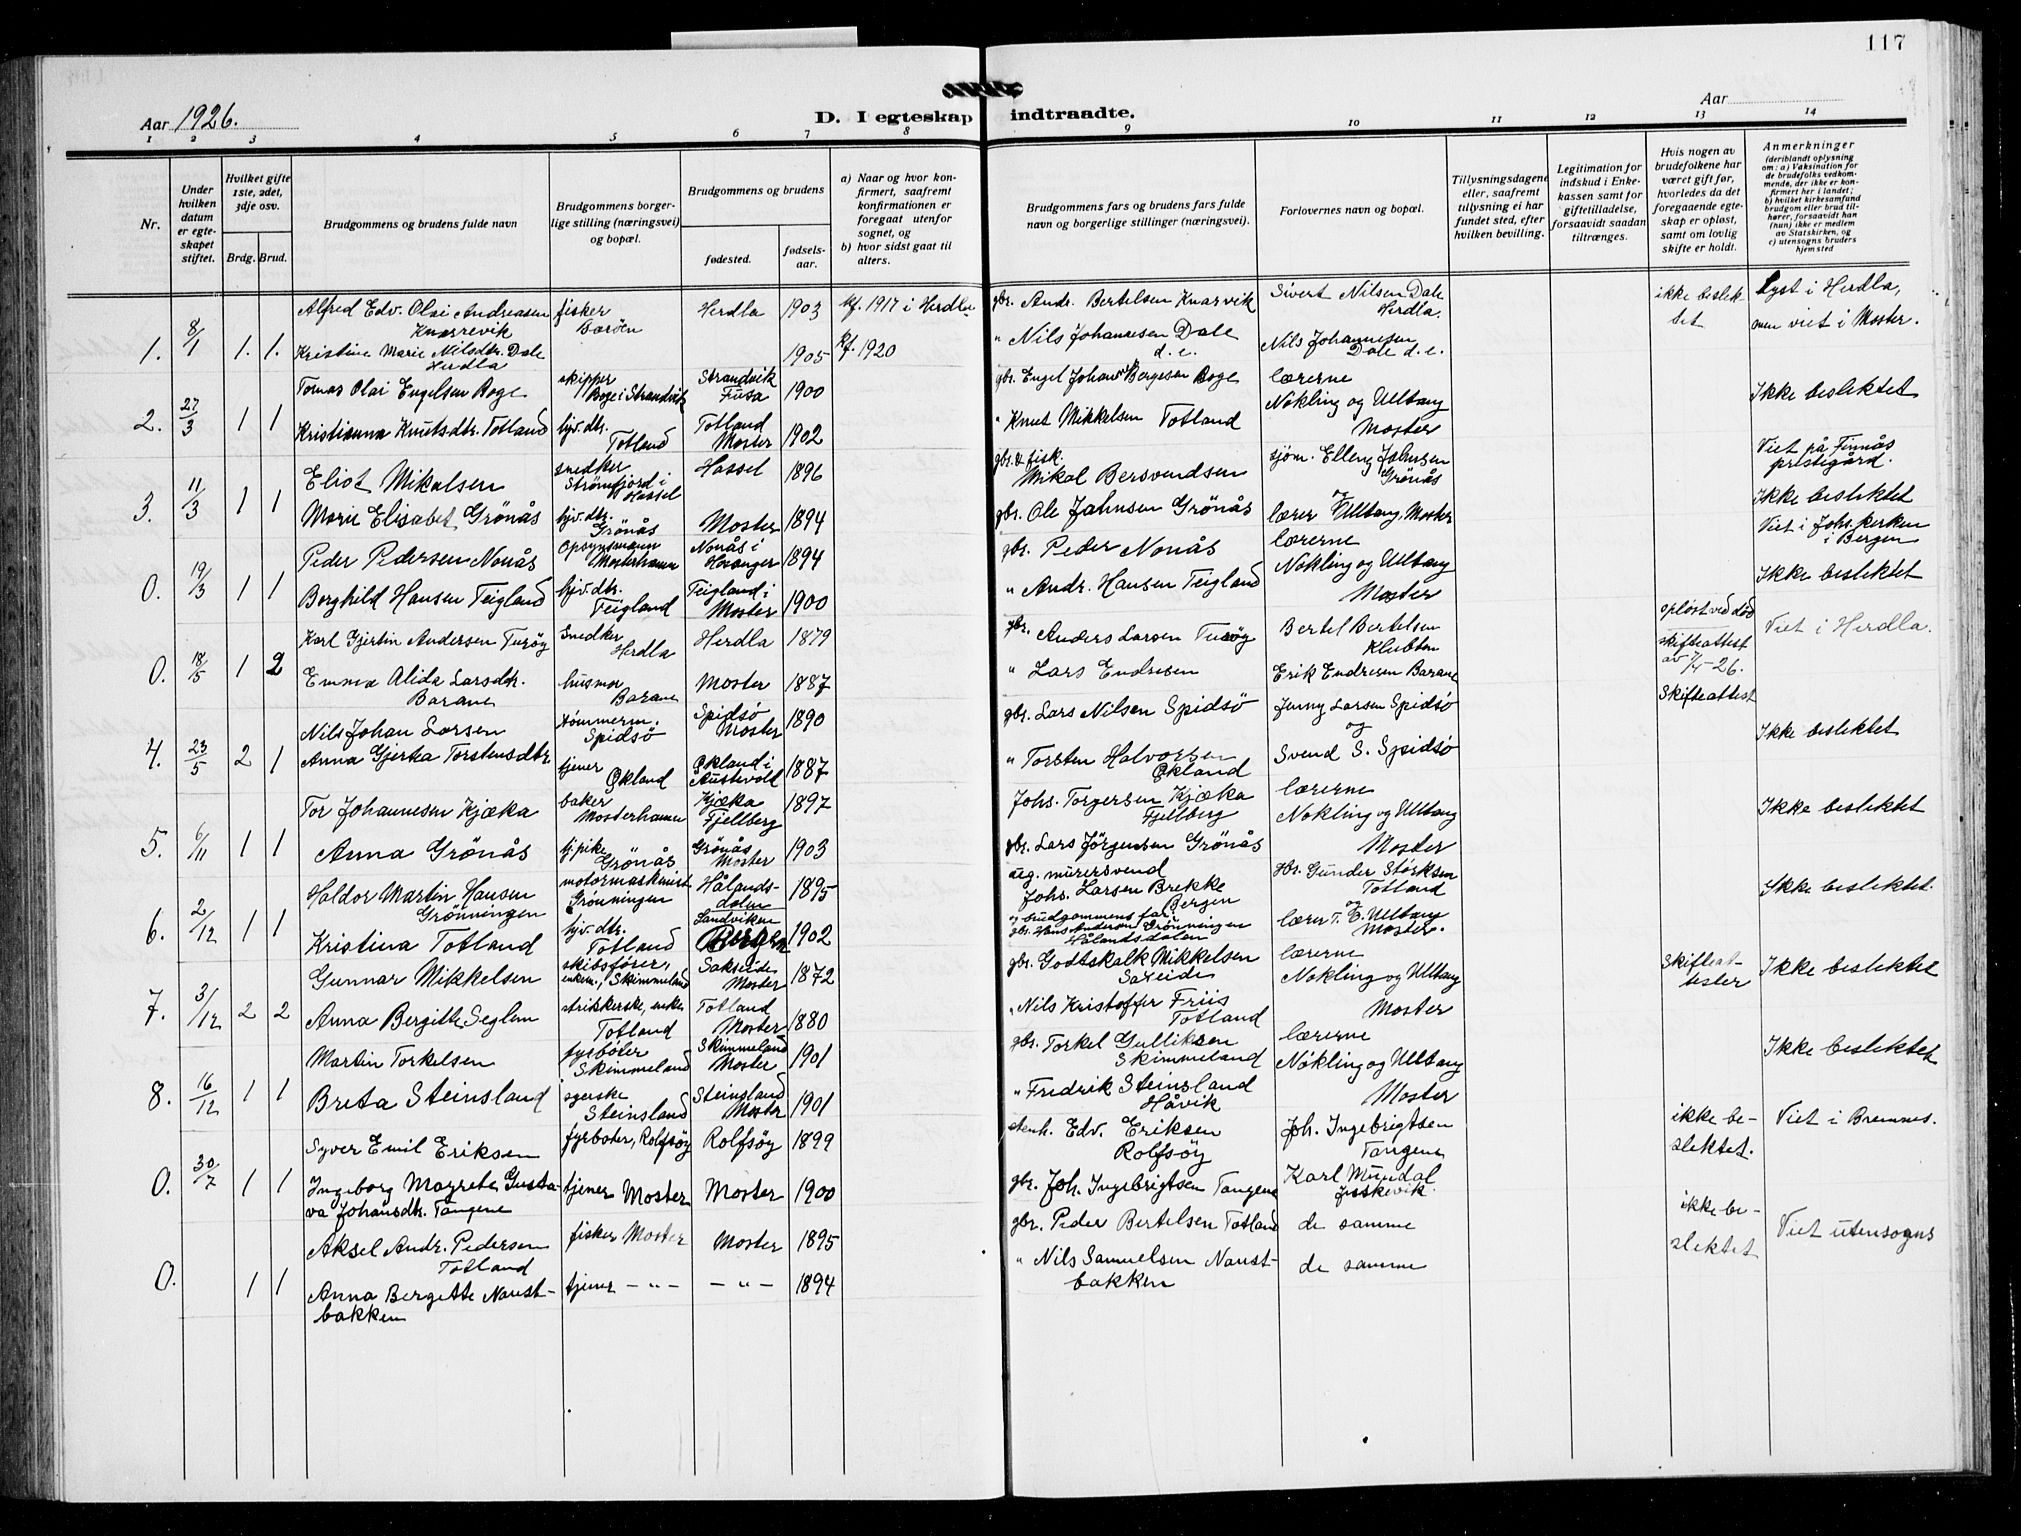 117
Aar 1926.
D. I egteskap indtraadte.
Aar
1 2 3 4 5 6 7 8 9 10 11 12 13 14
Nr.
Under hvilken datum er egteskapet stiftet.
Hvilket gifte 1ste, 2det, 3dje osv.
Brdg. Brud.
Brudgommens og brudens fulde navn
Brudgommens borgerlige stilling (næringsvei) og bopæl.
Brudgommens og brudens
fødested.
fødselsaar.
a) Naar og hvor konfirmert, saafremt konfirmationen er foregaat utenfor sognet, og
b) hvor sidst gaat til alters.
Brudgommens fars og brudens fars fulde navn og borgerlige stillinger (næringsvei).
Forlovernes navn og bopæl.
Tillysningsdagene eller, saafremt tillysning ei har fundet sted, efter hvilken bevilling.
Legitimation for indskud i Enkekassen samt for giftetilladelse, forsaavidt saadan tiltrænges.
Hvis nogen av brudefolkene har været gift før, hvorledes da det foregaaende egteskap er opløst, samt om lovlig skifte er holdt.
Anmerkninger (deriblandt oplysning om: a) Vaksination for de brudefolks vedkommende, der ikke er konfirmert her i landet; b) hvilket kirkesamfund brudgom eller brud tilhører, forsaavidt han (hun) ikke er medlem av Statskirken, og c) utensogns bruders hjemsted
1. 8/1 1. 1. Alfred Edv. Olai Andreasen Knarrevik fisker Herdla 1903 kf. 1917 i Herdla gbr. Andr. Bertelsen Knarvik Sivert Nilsen Dale Herdla. ikke beslektet Lyst i Herdla, men viet i Moster.
Kristine Marie Nilsdtr. Dale Herdla 1905 kf. 1920 " Nils Johannesen Dale d. e. Nils Johannesen Dale d. e.
2. 27/3 1 1 Tomas Olai Engelsen Boge skipper Boge i Strandvik Strandvik Fusa 1900 gbr. Engel Johan Bergesen Boge lærerne Nøkling og Ulltang Moster Ikke beslektet
Kristianna Knutsdtr. Totland hjv. dtr. Totland Totland Moster 1902 " Knut Mikkelsen Totland
3. 11/3 1 1 Eliot Mikalsen snedker Strømfjord i Hassel Hassel 1896 gbr. & fisk. Mikal Bersvendsen sjøm. Elling Jahnsen Grønås og Viet på Finnås prestegård.
Marie Elisabet Grönås hjv. dtr. Grönås Moster 1894 gbr. Ole Jahnsen Grönås lærer Ulltang, Moster Ikke beslektet
0. 19/3 1 1 Peder Pedersen Nonås Opsynsmann Mosterhamn Nonås i Hosanger 1894 gbr. Peder Nonås lærerne Nøkling og Ulltang Moster Viet i Johs. kirken i Bergen
Borghild Hansen Teigland hjv. dtr. Teigland Teigland i Moster 1900 " Andr. Hansen Teigland Ikke beslektet
0. 18/5 1 2 Karl Gjertin Andersen Turöy Snedker Herdla Herdla 1879 gbr. Anders Larsen Turöy Bertel Bertelsen Klubben opløst ved død skifteattest Viet i Herdla.
Emma Alida Larsdtr. Barane husmor Barane Moster 1887 " Lars Endresen Erik Endresen Barane
4. 23/5 2 1 Nils Johan Larsen tømmerm. Spidsö Spidsö Moster 1890 gbr. Lars Nilsen Spidsö Jenny Larsen Spidsö og Skifteattest Ikke beslektet
Anna Gjerka Torstensdtr. tjener Økland Økland i Austevold 1887 " Torsten Halvorsen Økland Svend S. Spidsö
5. 6/11 1 1 Tor Johannesen Kjæka baker Mosterhamn Kjæka Fjellberg 1897 Johs. Torgersen Kjæka Fjellberg lærerne Nøkling og Ulltang Moster Ikke beslektet
Anna Grönås tj. pike Grönås Grönås Moster 1903 gbr. Lars Jörgensen Grönås
6. 2/12 1 1 Haldor Martin Hansen Grönningen motormaskinist Grönningen Hålandsdalen 1895 arg. murersvend Johs. Larsen Brekke Bergen gbr. Gunder Størksen Totland og Ikke beslektet.
Kristina Totland hjv. dtr. Totland Sandviken Bergen 1902 og brudgommens far: gbr. Hans Anderson Grönningen Hålandsdalen lærer T. E. Ulltang Moster.
7. 3/12 2 2 Gunnar Mikkelsen skibsfører, enkem., Skimmeland Sakseide Moster 1872 gbr. Godtskalk Mikkelsen Saxeide lærerne Nøkling og Ulltang Moster Skifteattester Ikke beslektet
Anna Bergitte Seglem strikkerske, enke Totland Totland Moster 1880 " Nils Kristoffer Friis Totland
8. 16/12 1 1 Martin Torkelsen fyrbøter Skimmeland Skimmeland Moster 1901 gbr. Torkel Gulliksen Skimmeland lærerne Nøkling og Ulltang Moster Ikke beslektet
Breta Steinsland syerske Steinsland Steinsland Moster 1901 " Fredrik Steinsland Håvik
0. 30/7 1 1 Syver Emil Eriksen fyrbøter, Rolfsøy Rolfsøy 1899 stenh. Edv. Eriksen Rolfsöy Joh. Ingebrigtsen Tangene ikke beslektet. Viet i Bremnes.
Ingeborg Magrete Gustava Johansdtr. Tangene tjener Moster Moster 1900 gbr. Joh. Ingebrigtsen Tangene Karl Mundal
0. 1 1 Aksel Andr. Pedersen Totland fisker Moster Moster 1895 gbr. Peder Bertelsen Totland de samme ikke beslektet Viet utensogns
Anna Bergette Naustbakken tjener — " — — " — 1894 " Nils Samuelsen Naustbakken de samme